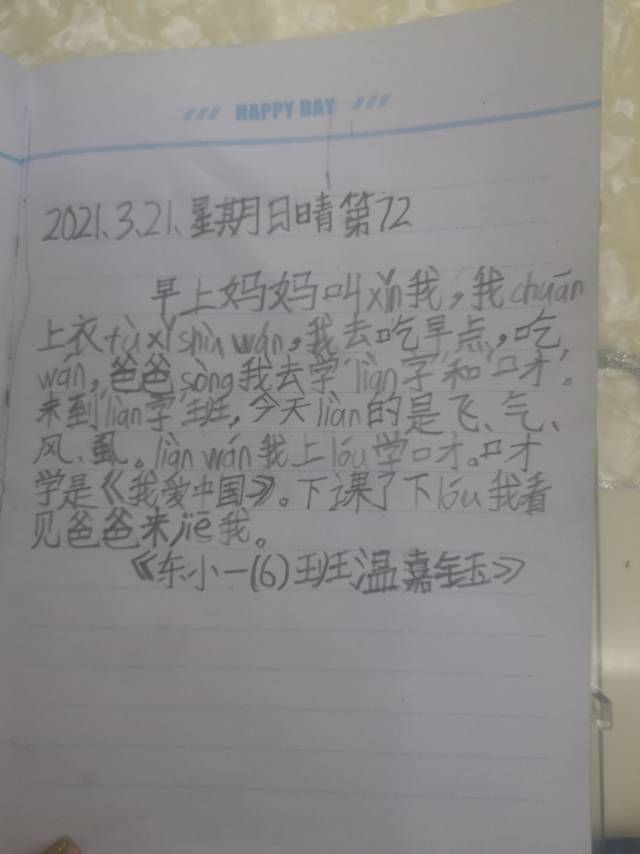 HAPPY DAY
2021.3.21.星期日晴第72
早上妈妈叫xǐn我，我chuán
上衣fù xǐ shù wán，我去吃早点，吃
wán，爸爸sòng我去学"liàn字"和"口才"。
来到"liàn字"班，今天liàn的是飞、气、
风、虱。liàn wán我上lóu学口才。口才
学是《我爱中国》。下课了下lóu我看
见爸爸来jiē我。
《东小一(6)班温嘉钰》